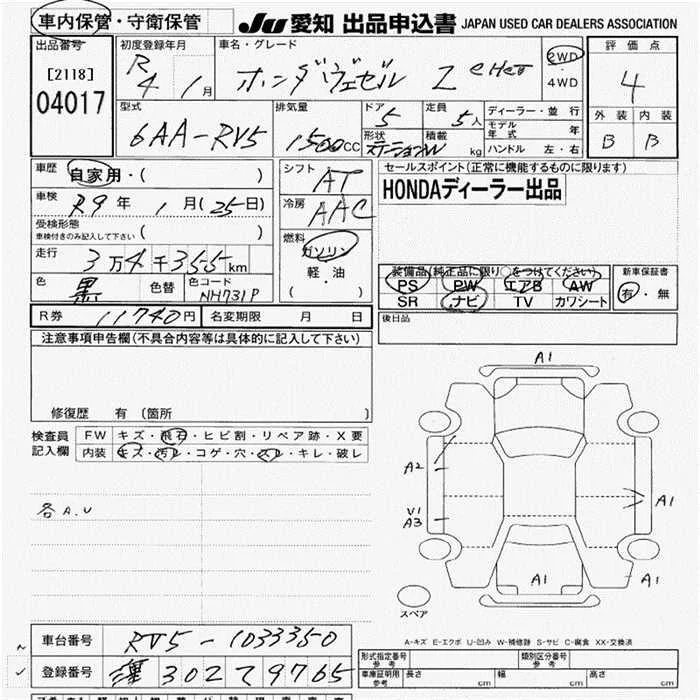 車内保管・守衛保管 JU 愛知 出品申込書 JAPAN USED CAR DEALERS ASSOCIATION
出品番号 初度登録年月 車名・グレード 評価点
[2118] R4 1月 ホンダ ヴェゼル Z eHeV 2WD・4WD 4
04017 型式 排気量 ドア 定員 ディーラー・並行 外装 内装
6AA-RV5 1500CC 5 5人 モデル年式 年 B B
形状 ステーションW 積載 kg ハンドル 左・右
車歴 自家用・( ) シフト AT セールスポイント(正常に機能するものに限ります)
車検 R9年 1月(25日) 冷房 AAC HONDAディーラー出品
受検形態
車検付きのみ記入して下さい ( ) 燃料 ガソリン
走行 3万4千355km 軽・油 装備品(純正品に限り○をつけてください) 新車保証書
色 黒 色替 色コード NH731P ( ) PS PW エアB AW 有・無
SR ナビ TV カワシート
R券 11740円 名変期限 月 日 後日品
注意事項申告欄(不具合内容等は具体的に記入して下さい)
修復歴 有 (箇所 )
検査員 FW キズ・飛石・ヒビ割・リペア跡・X要
記入欄 内装 キズ・汚レ・コゲ・穴・スレ・キレ・破レ
各A.U
A1
A2
V1
A3
A1
A1
A1
スペア
A-キズ E-エクボ U-凹み W-補修跡 S-サビ C-腐食 XX-交換済
車台番号 RV5-1033350
登録番号 302 7 9765
形式指定番号 参考 類別区分番号 参考
車庫証明用 参考 長さ cm 幅 cm 高さ cm